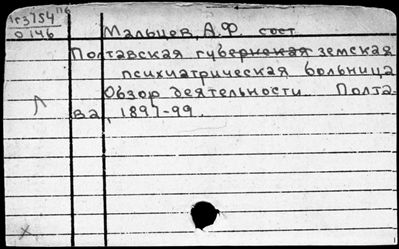 Мальцев, А.Ф. сост
Полтавская губернская земская
психиатрическая больница
Обзор деятельности. Полта-
ва, 1897-99.
0146